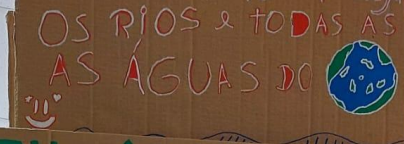 OS RIOS e toDAS AS
AS ÁGUAS DO